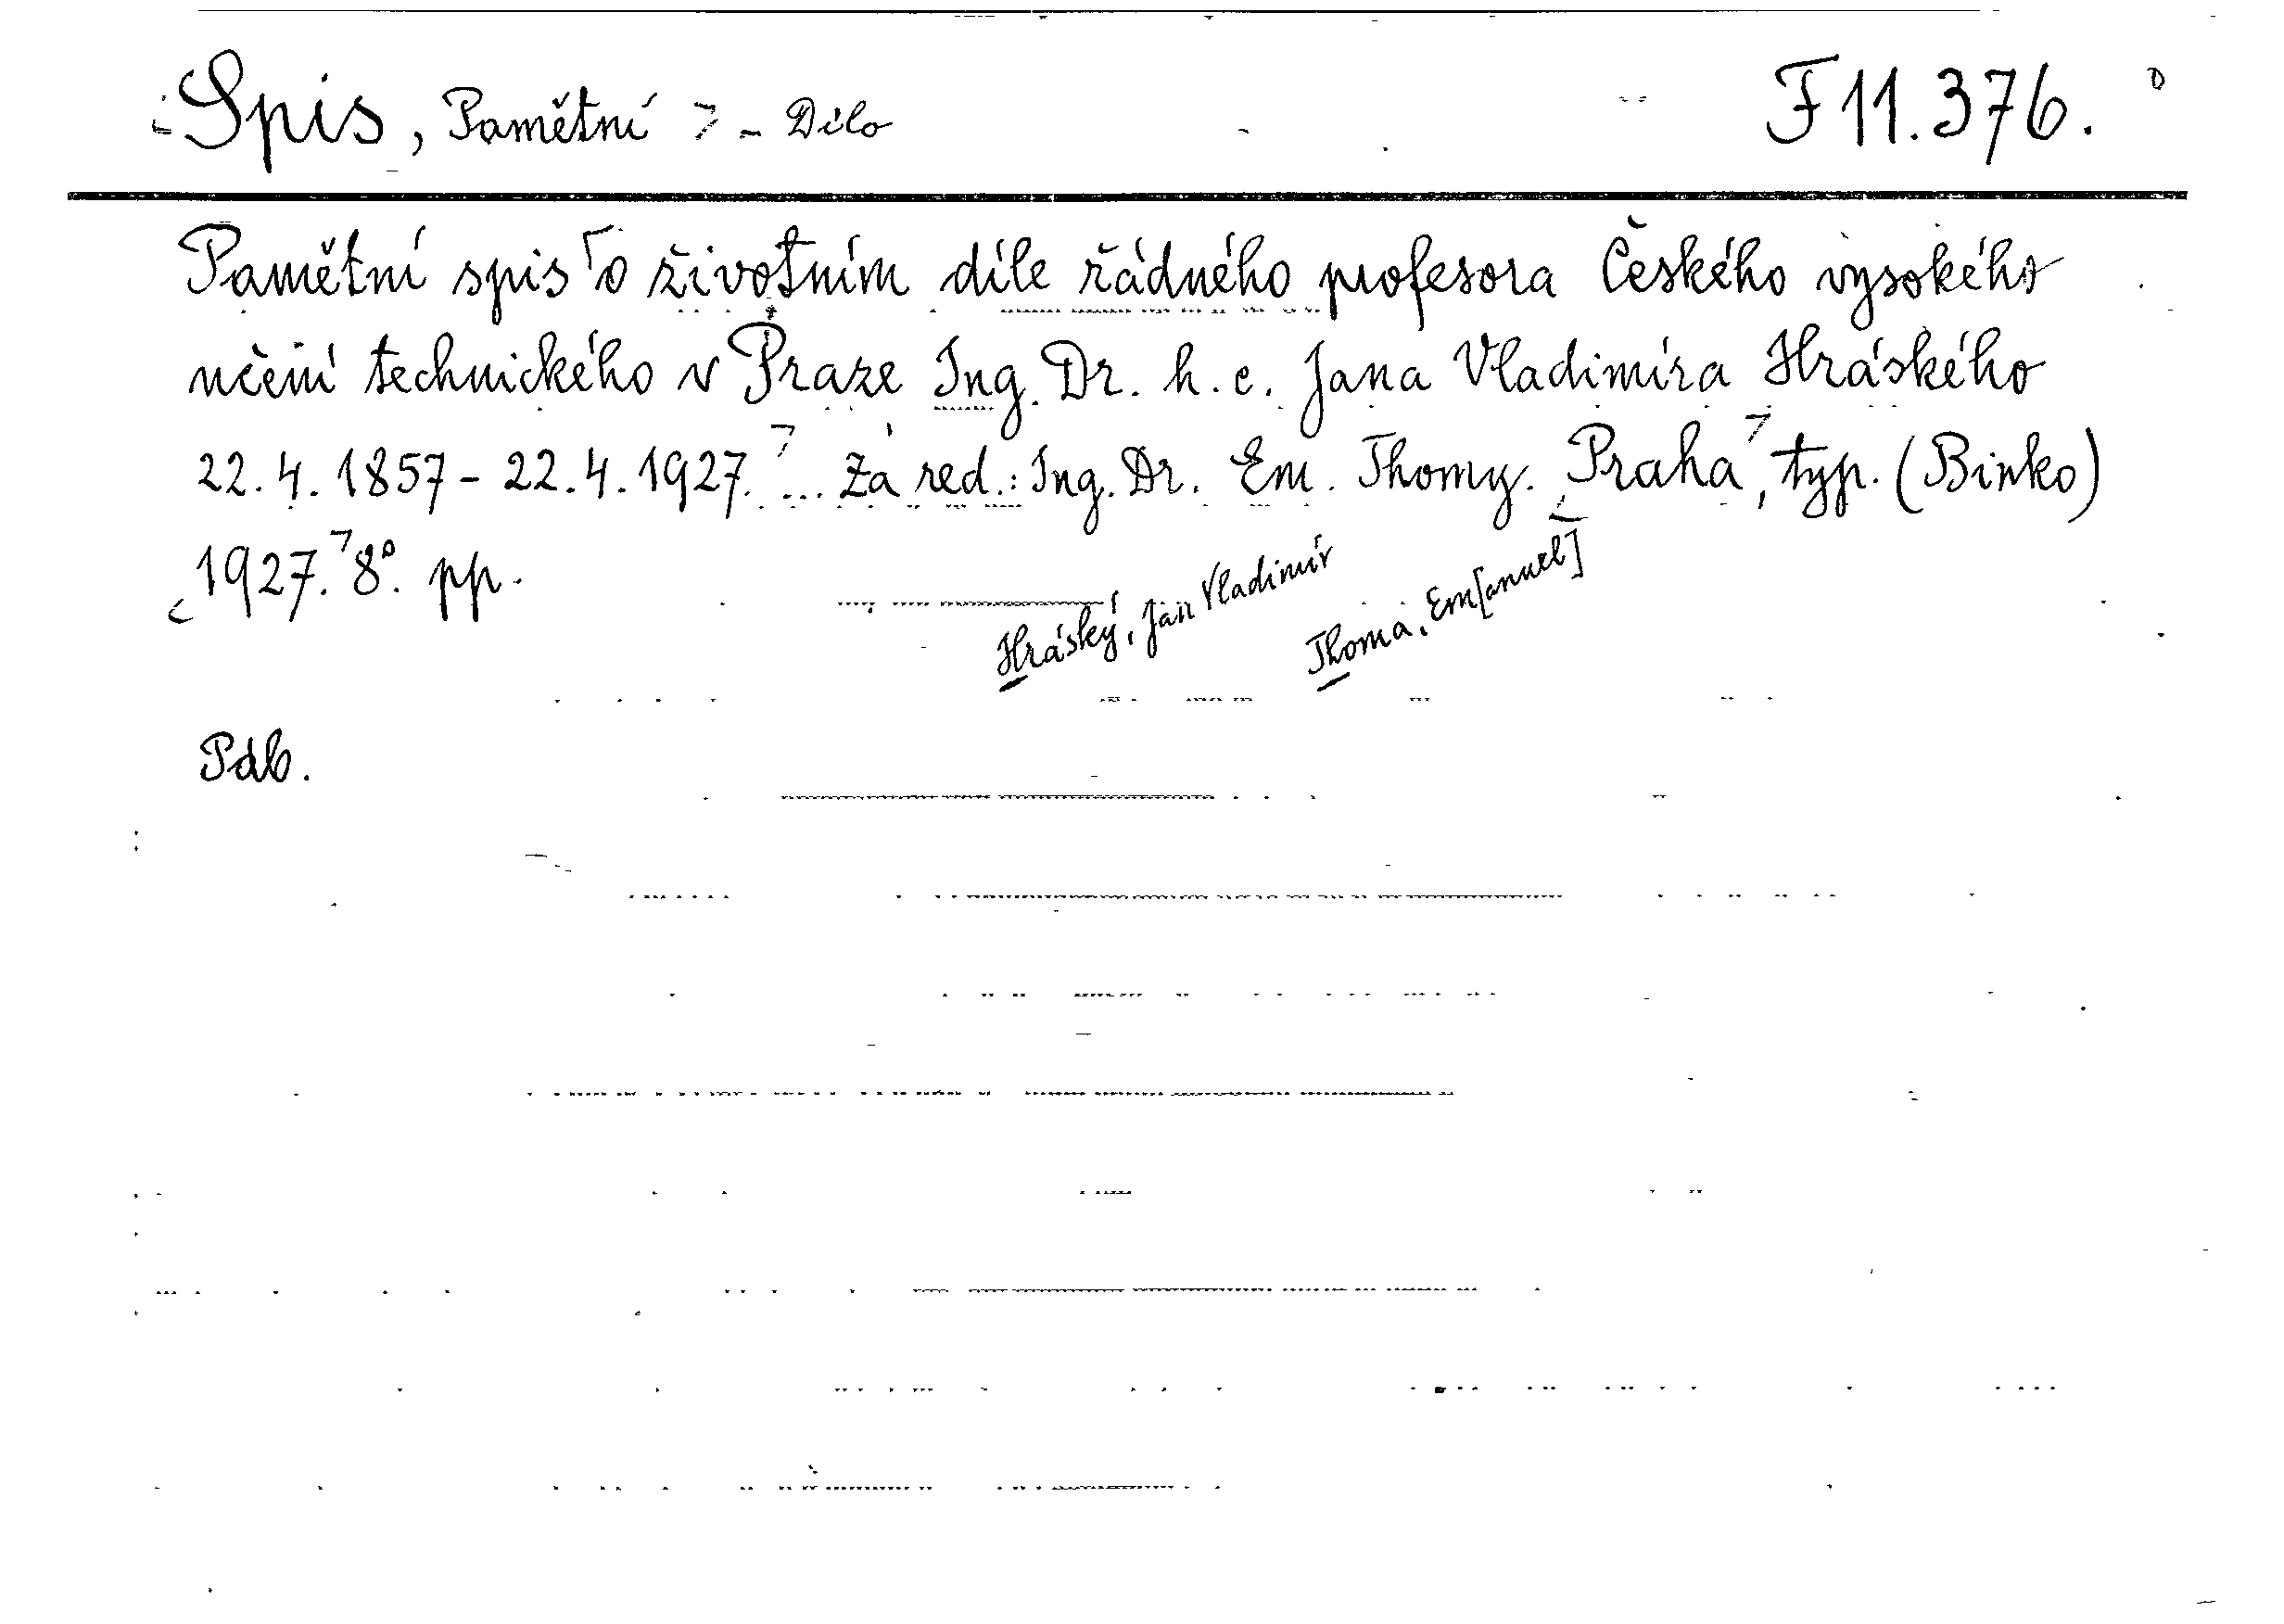 Spis, Pamětní - Dílo F 11.376.
Pamětní spis o životním díle řádného profesora Českého vysokého
učení technického v Praze Ing. Dr. h. c. Jana Vladimíra Hráského
22. 4. 1857 - 22. 4. 1927. ... Za red.: Ing. Dr. Em. Thomy. Praha, typ. (Binko)
1927. 8°. pp.
Hráský, Jan Vladimír
Thoma, Em[anuel]
Pdb.